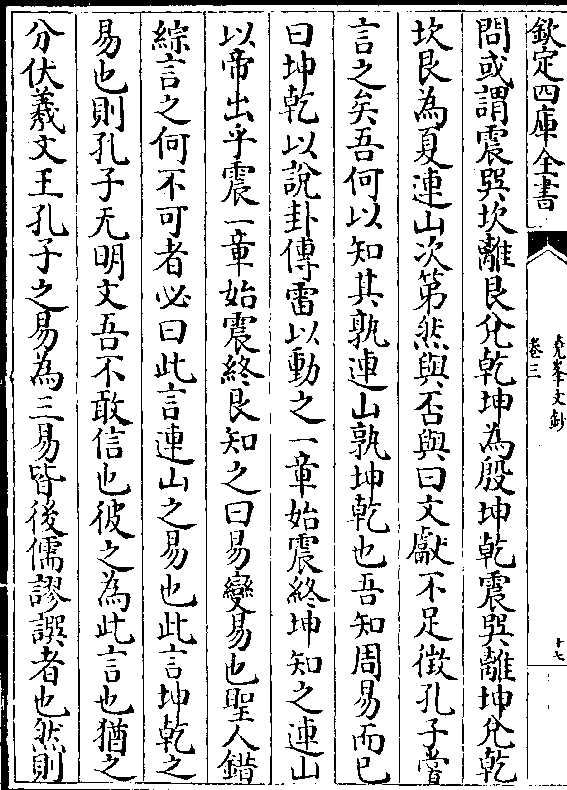 欽定四庫全書
堯峯文鈔
卷三
十七
問或謂震巽坎離艮兊乾坤為殷坤乾震巽離坤兊乾
坎艮為夏連山次第然與否與曰文獻不足徴孔子嘗
言之矣吾何以知其孰連山孰坤乾也吾知周易而已
曰坤乾以說卦傳雷以動之一章始震終坤知之連山
以帝出乎震一章始震終艮知之曰易變易也聖人錯
綜言之何不可者必曰此言連山之易也此言坤乾之
易也則孔子无明文吾不敢信也彼之為此言也猶之
分伏羲文王孔子之易為三易皆後儒謬誤者也然則